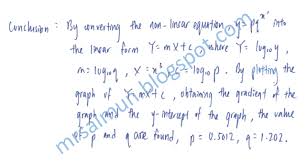 Conclusion : By converting the non-linear equation y = pq^x³ into
the linear form Y = mX + c where Y = log₁₀ y,
m = log₁₀ q, X = x³, c = log₁₀ p. By plotting the
graph of Y = mX + c, obtaining the gradient of the graph
and the y-intercept of the graph, the value
of p and q are found, p = 0.5012, q = 1.202.
mrsaimun.blogspot.com